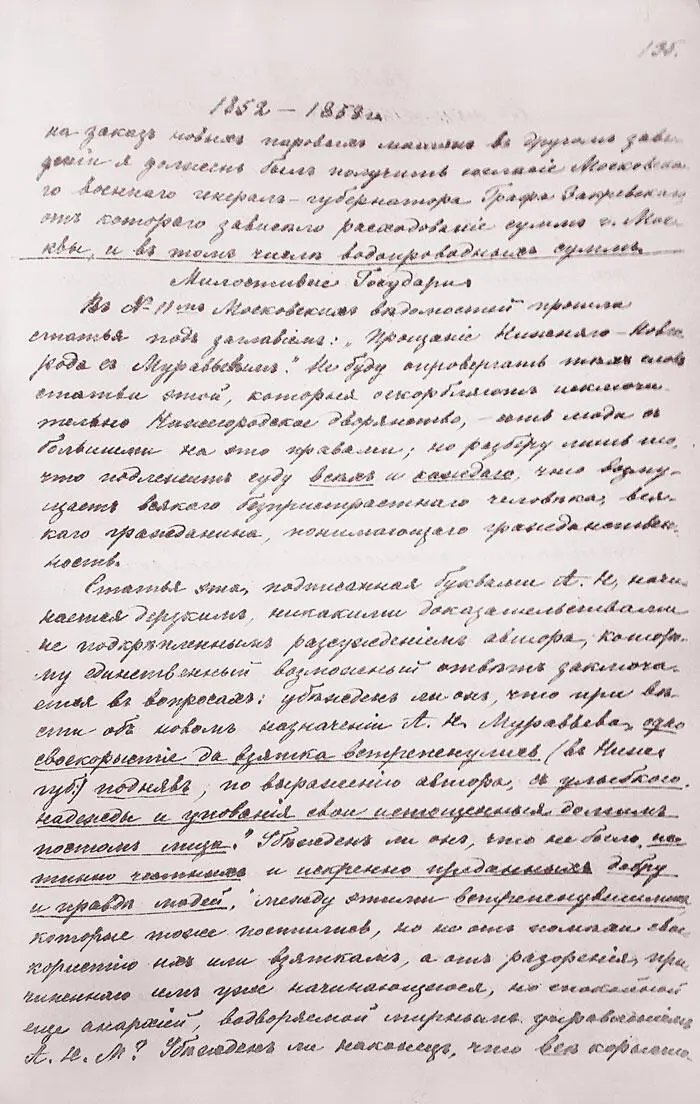 135.
1852 – 1853 г.
на заказъ новыхъ паровыхъ машинъ въ другомъ заве-
деніи я долженъ былъ получить согласіе Московска-
го военнаго генералъ-губернатора Графа Закревскаго
отъ котораго зависѣло расходованіе суммъ г. Мос-
квы, и въ томъ числѣ водопроводныхъ суммъ
Милостивые Государи
Въ № 11мъ Московскихъ вѣдомостей прошла
статья подъ заглавіемъ: „Прощаніе Нижняго-Новго-
рода съ Муравьевымъ." Не буду опровергать тѣхъ словъ
статьи этой, которыя оскорбляютъ исключи-
тельно Нижегородское дворянство, – есть люди съ
большими на это правами; но разберу лишь то,
что подлежитъ суду всѣхъ и каждаго, что возму-
щаетъ всякаго безпристрастнаго человѣка, вся-
каго гражданина, понимающаго гражданствен-
ность.
Статья эта, подписанная буквами А. Н, начи-
нается дерзкимъ, никакими доказательствами
не подкрѣпленнымъ разсужденіемъ автора, которо-
му единственный возможный отвѣтъ заключа-
ется въ вопросахъ: убѣжденъ ли онъ, что при вѣ-
сти объ новомъ назначеніи А. Н. Муравьева, одно
своекорыстіе да взятка встрепенулись (въ Ниже
губ.) поднявъ, по выраженію автора, съ улыбкою
надежды и упованія свои истощенныя долгимъ
постомъ лица." Убѣжденъ ли онъ, что не было, ис-
тинно честныхъ и искренно преданныхъ добру
и правдѣ людей, между этими встрепенувшимися,
которые тоже постились, но не отъ помѣхи свое-
корыстію ихъ или взяткамъ, а отъ разоренія, при-
чиненнаго имъ уже начинающеюся, но спокойной
еще анархіей, водворяемой мирнымъ управленіемъ
А. Н. М? Убѣжденъ ли наконецъ, что всѣ